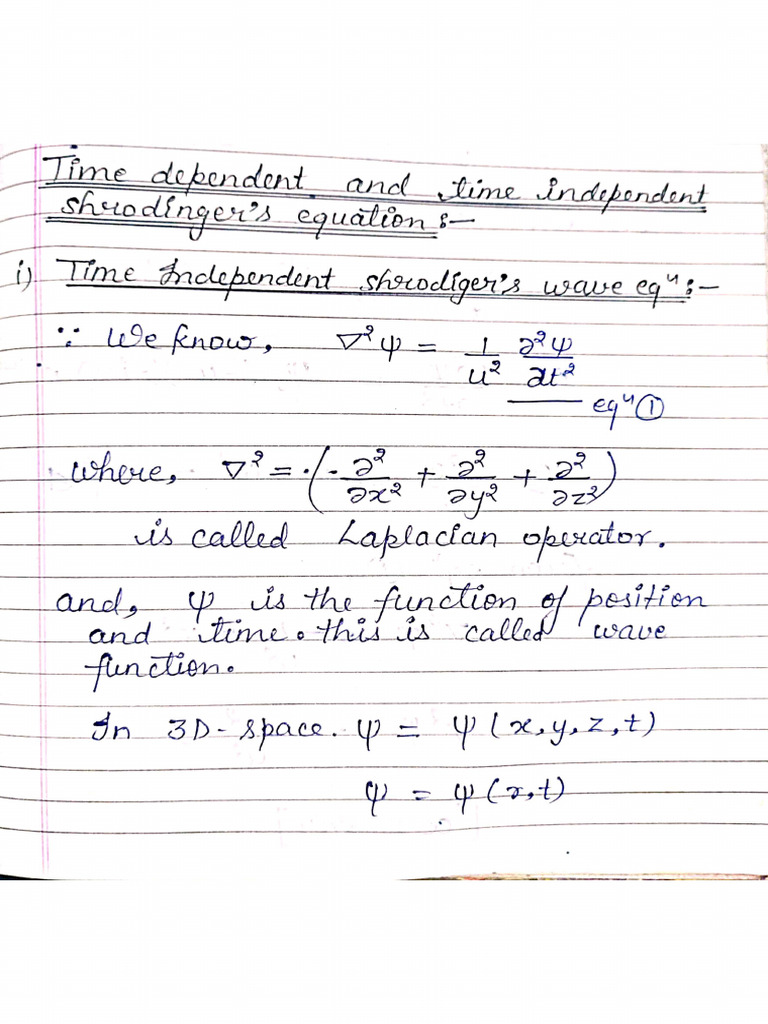 Time dependent and time independent
shrodinger's equation :-
i) Time Independent shrodiger's wave eqⁿ :-
∵ We know, ∇²ψ = 1/u² ∂²ψ/∂t²
— eqⁿ ①
where, ∇² = (∂²/∂x² + ∂²/∂y² + ∂²/∂z²)
is called Laplacian operator.
and, ψ is the function of position
and time. this is called wave
function.
In 3D-space. ψ = ψ(x,y,z,t)
ψ = ψ(r,t)